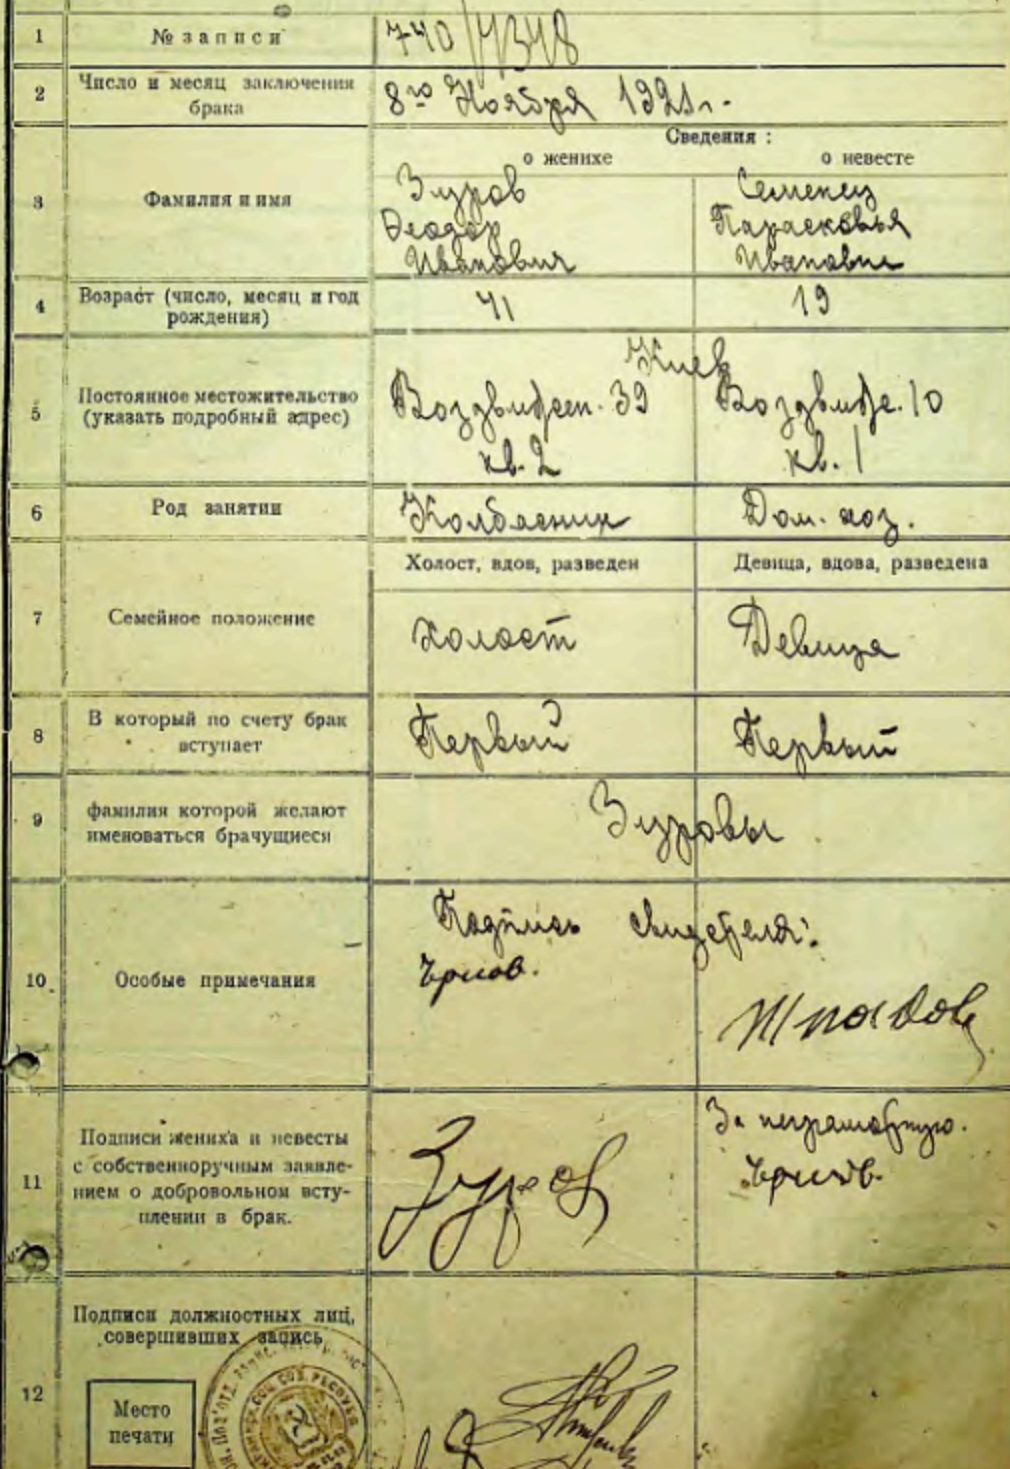 1 № записи 740/4348
2 Число и месяц заключения
брака
8го Ноября 1921 г.
Сведения :
о женихе о невесте
3 Фамилия и имя
Зуров Семенец
Феодор Парасковья
Иванович Ивановна
4 Возраст (число, месяц и год
рождения)
41 19
Киев
5 Постоянное местожительство
(указать подробный адрес)
Воздвижен. 39 Воздвиже. 10
кв. 2 кв. 1
6 Род занятии Колбасник Дом. хоз.
Холост, вдов, разведен Девица, вдова, разведена
7 Семейное положение Холост Девица
8 В который по счету брак
вступает
Первый Первый
9 фамилия которой желают
именоваться брачущиеся
Зуровы
10 Особые примечания
Подпись свидетеля:
11 Подписи жениха и невесты
с собственноручным заявле-
нием о добровольном всту-
плении в брак.
Зуров За неграмотную.
12 Подписи должностных лиц,
совершивших запись
Место
печати